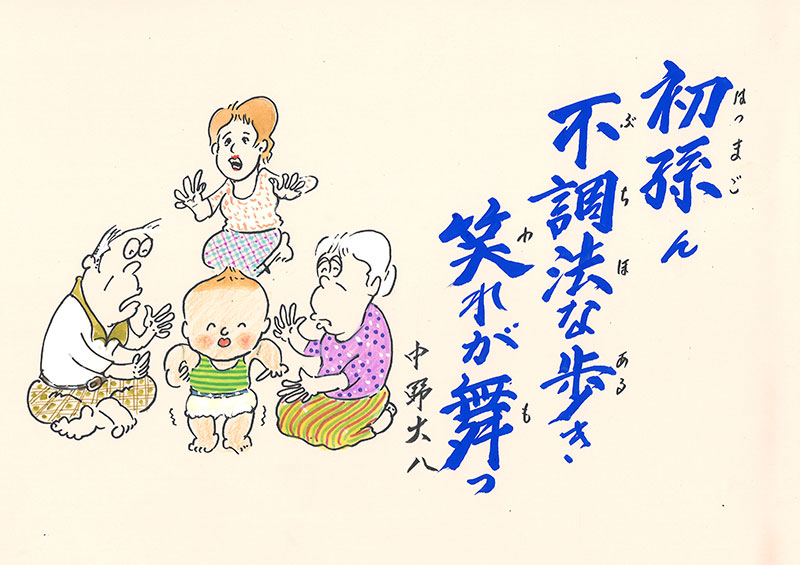 初孫ん
はつまご
不調法な歩き
ぶちほ ある
笑れが舞つ
わ も
中野大八